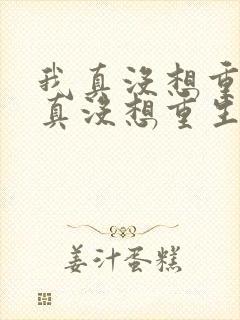 我真没想重
真没想重生
姜汁蛋糕